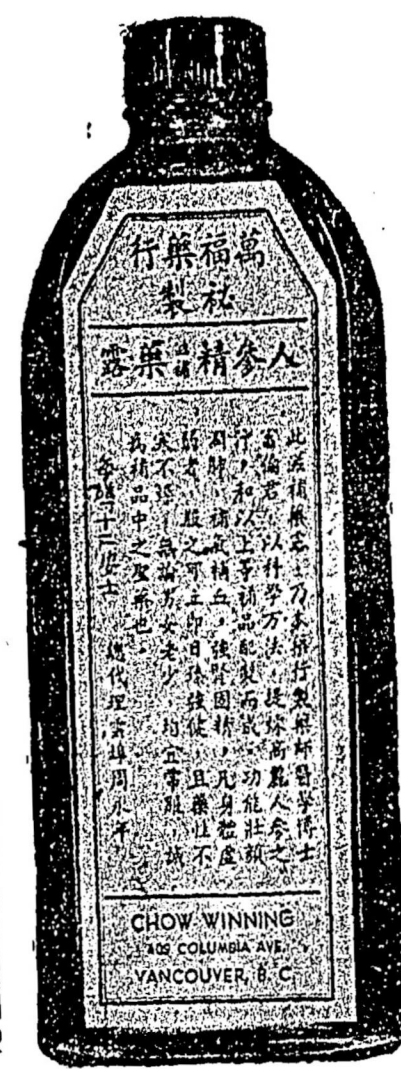 萬福藥行
祕製
人參精補藥露
此液補藥露、乃本藥行製藥師醫學博士
倫君、以科學方法、提煉高麗人參之
行、和以上等補品配製而成、功能壯顏
潤肺、補氣補血、強腎固精、凡身體虛
弱者、服之可立即日臻強健、且藥性不
寒不燥、無論男女老少、均宜常服、誠
為補品中之聖藥也。
每 十二 士 總代理雲埠周永年
CHOW WINNING
409 COLUMBIA AVE.
VANCOUVER, B.C